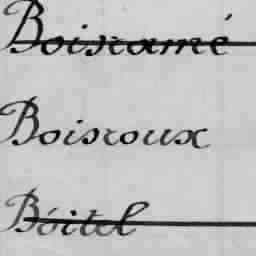 Boisramé
Boisroux
Boitel